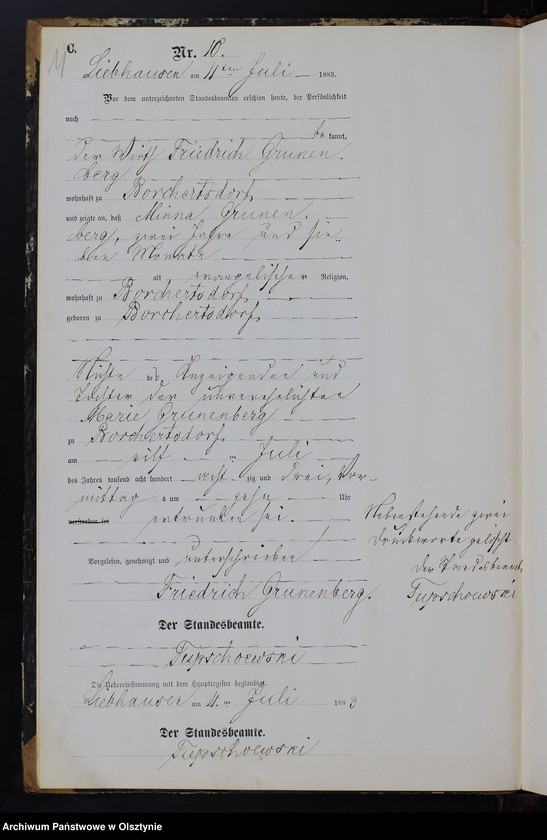 C.
Nr. 10.
11
Liebhausen am 11ten Juli 1883.
Vor dem unterzeichneten Standesbeamten erschien heute, der Persönlichkeit
nach
be kannt,
der Wirth Friedrich Grunen-
berg
wohnhaft zu Borchertsdorf,
und zeigte an, daß Minna Grunen-
berg, zwei Jahre und sie-
ben Monate
alt, evangelischer Religion,
wohnhaft zu Borchertsdorf,
geboren zu Borchertsdorf,
Nichte des Anzeigenden und
Tochter der unverehelichten
Marie Grunenberg
zu Borchertsdorf,
am eilf ten Juli
des Jahres tausend acht hundert acht zig und drei, Vor-
mittag s um zehn Uhr
verstorben sei ertrunken sei.
Nebenstehende zwei
Druckworte gelöscht
Der Standesbeamte
Vorgelesen, genehmigt und unterschrieben
Friedrich Grunenberg.
Der Standesbeamte.
Die Uebereinstimmung mit dem Hauptregister beglaubigt.
Liebhausen am 11. ten Juli 1883
Der Standesbeamte.
Archiwum Państwowe w Olsztynie